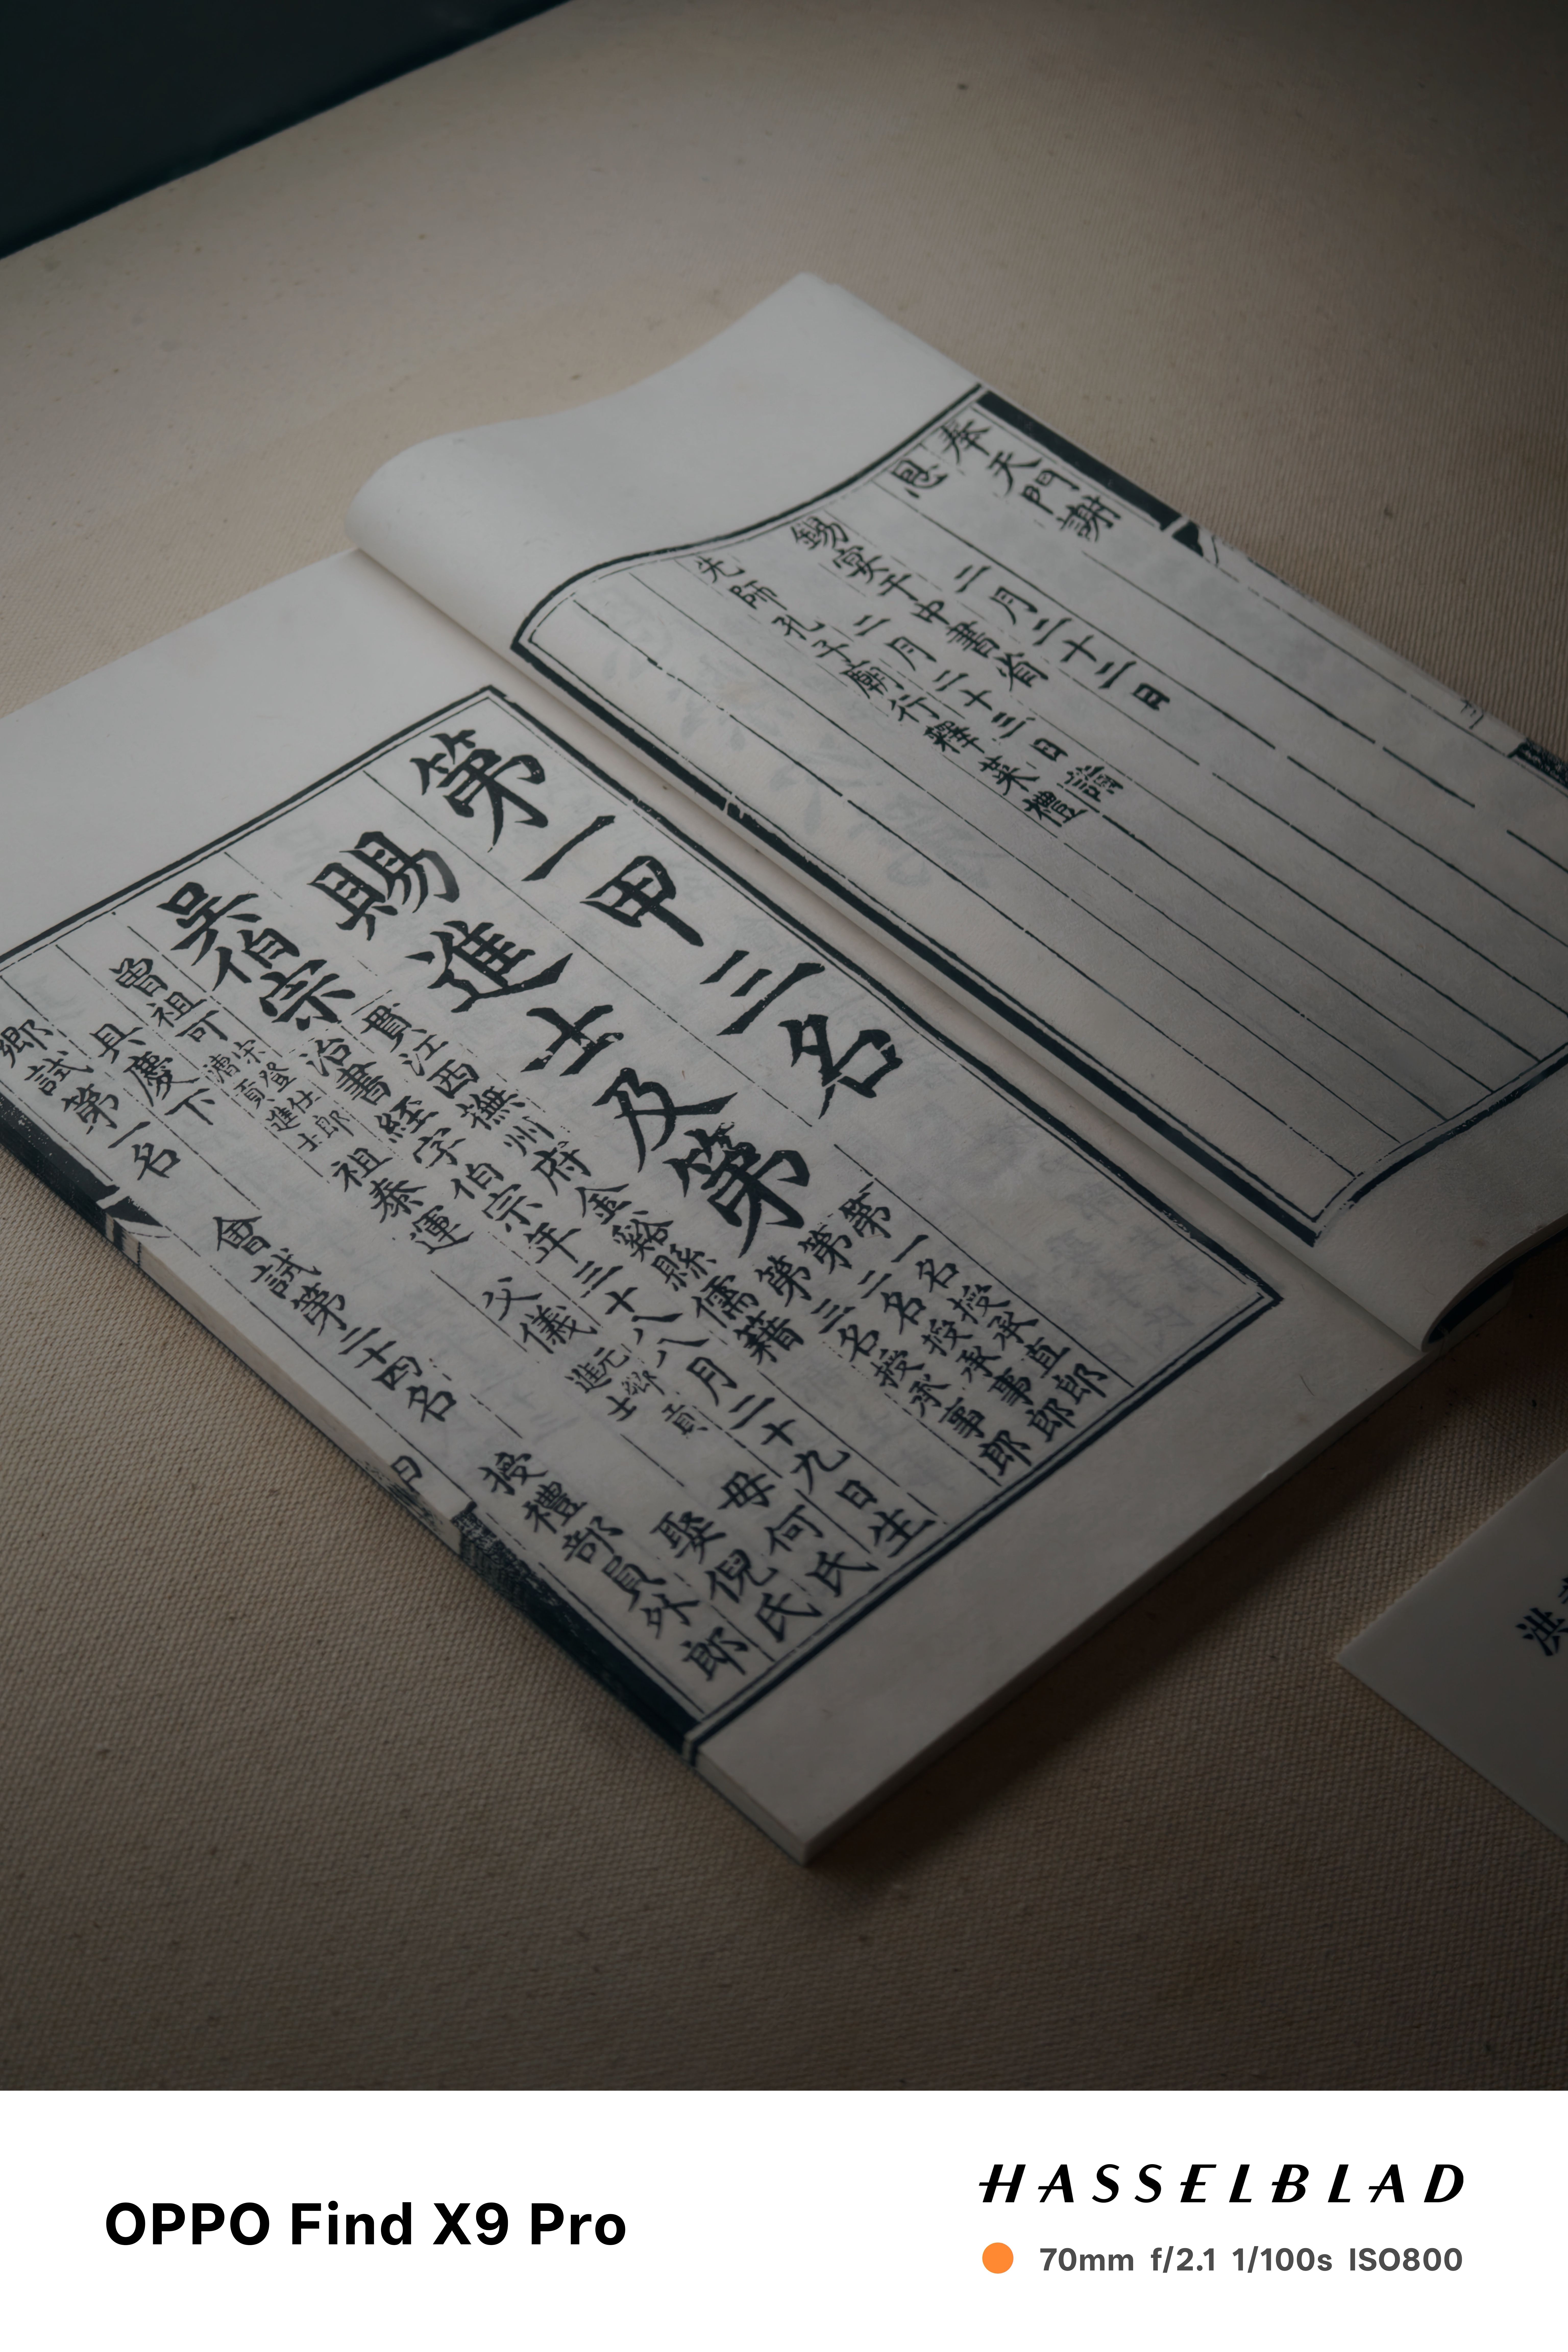 奉天門謝
恩
二月二十二日
錫宴于中書省
二月二十三日詣
先師孔子廟行釋菜禮
第一甲三名
賜進士及第
第一名授承直郎
第二名授承事郎
第三名授承事郎
吳伯宗
貫江西撫州府金谿縣儒籍
治書經字伯宗年三十八八月二十九日生
曾祖可 宋登仕郎漕貢進士 祖泰運 父儀 元鄉貢進士 母何氏
具慶下 娶倪氏
鄉試第一名 會試第二十四名 授禮部員外郎
洪
OPPO Find X9 Pro
HASSELBLAD
70mm f/2.1 1/100s ISO800